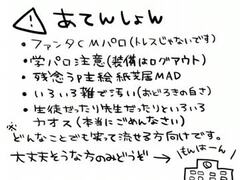 ⚠ あてんしょん
・ファンタCMパロ(トレスじゃないです)
・学パロ注意(装備はログアウト)
・残念うp主絵紙芝居MAD
・いろいろ雑で汚い(おどろきの白さ)
・生徒だったり先生だったりといろいろ
カオス(本当にごめんなさい)
※どんなことでも笑って流せる方向けです。
大丈夫そうな方のみどうぞ→
もんはーん